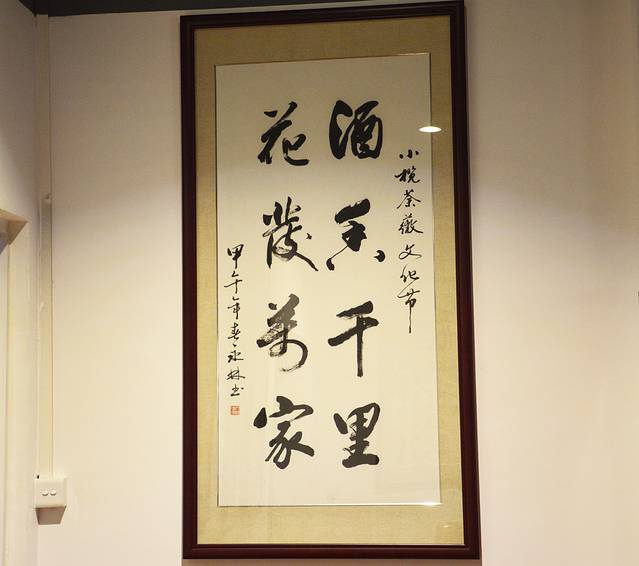 小榄荼薇文化节
酒香千里
花发萬家
甲午年春永林书